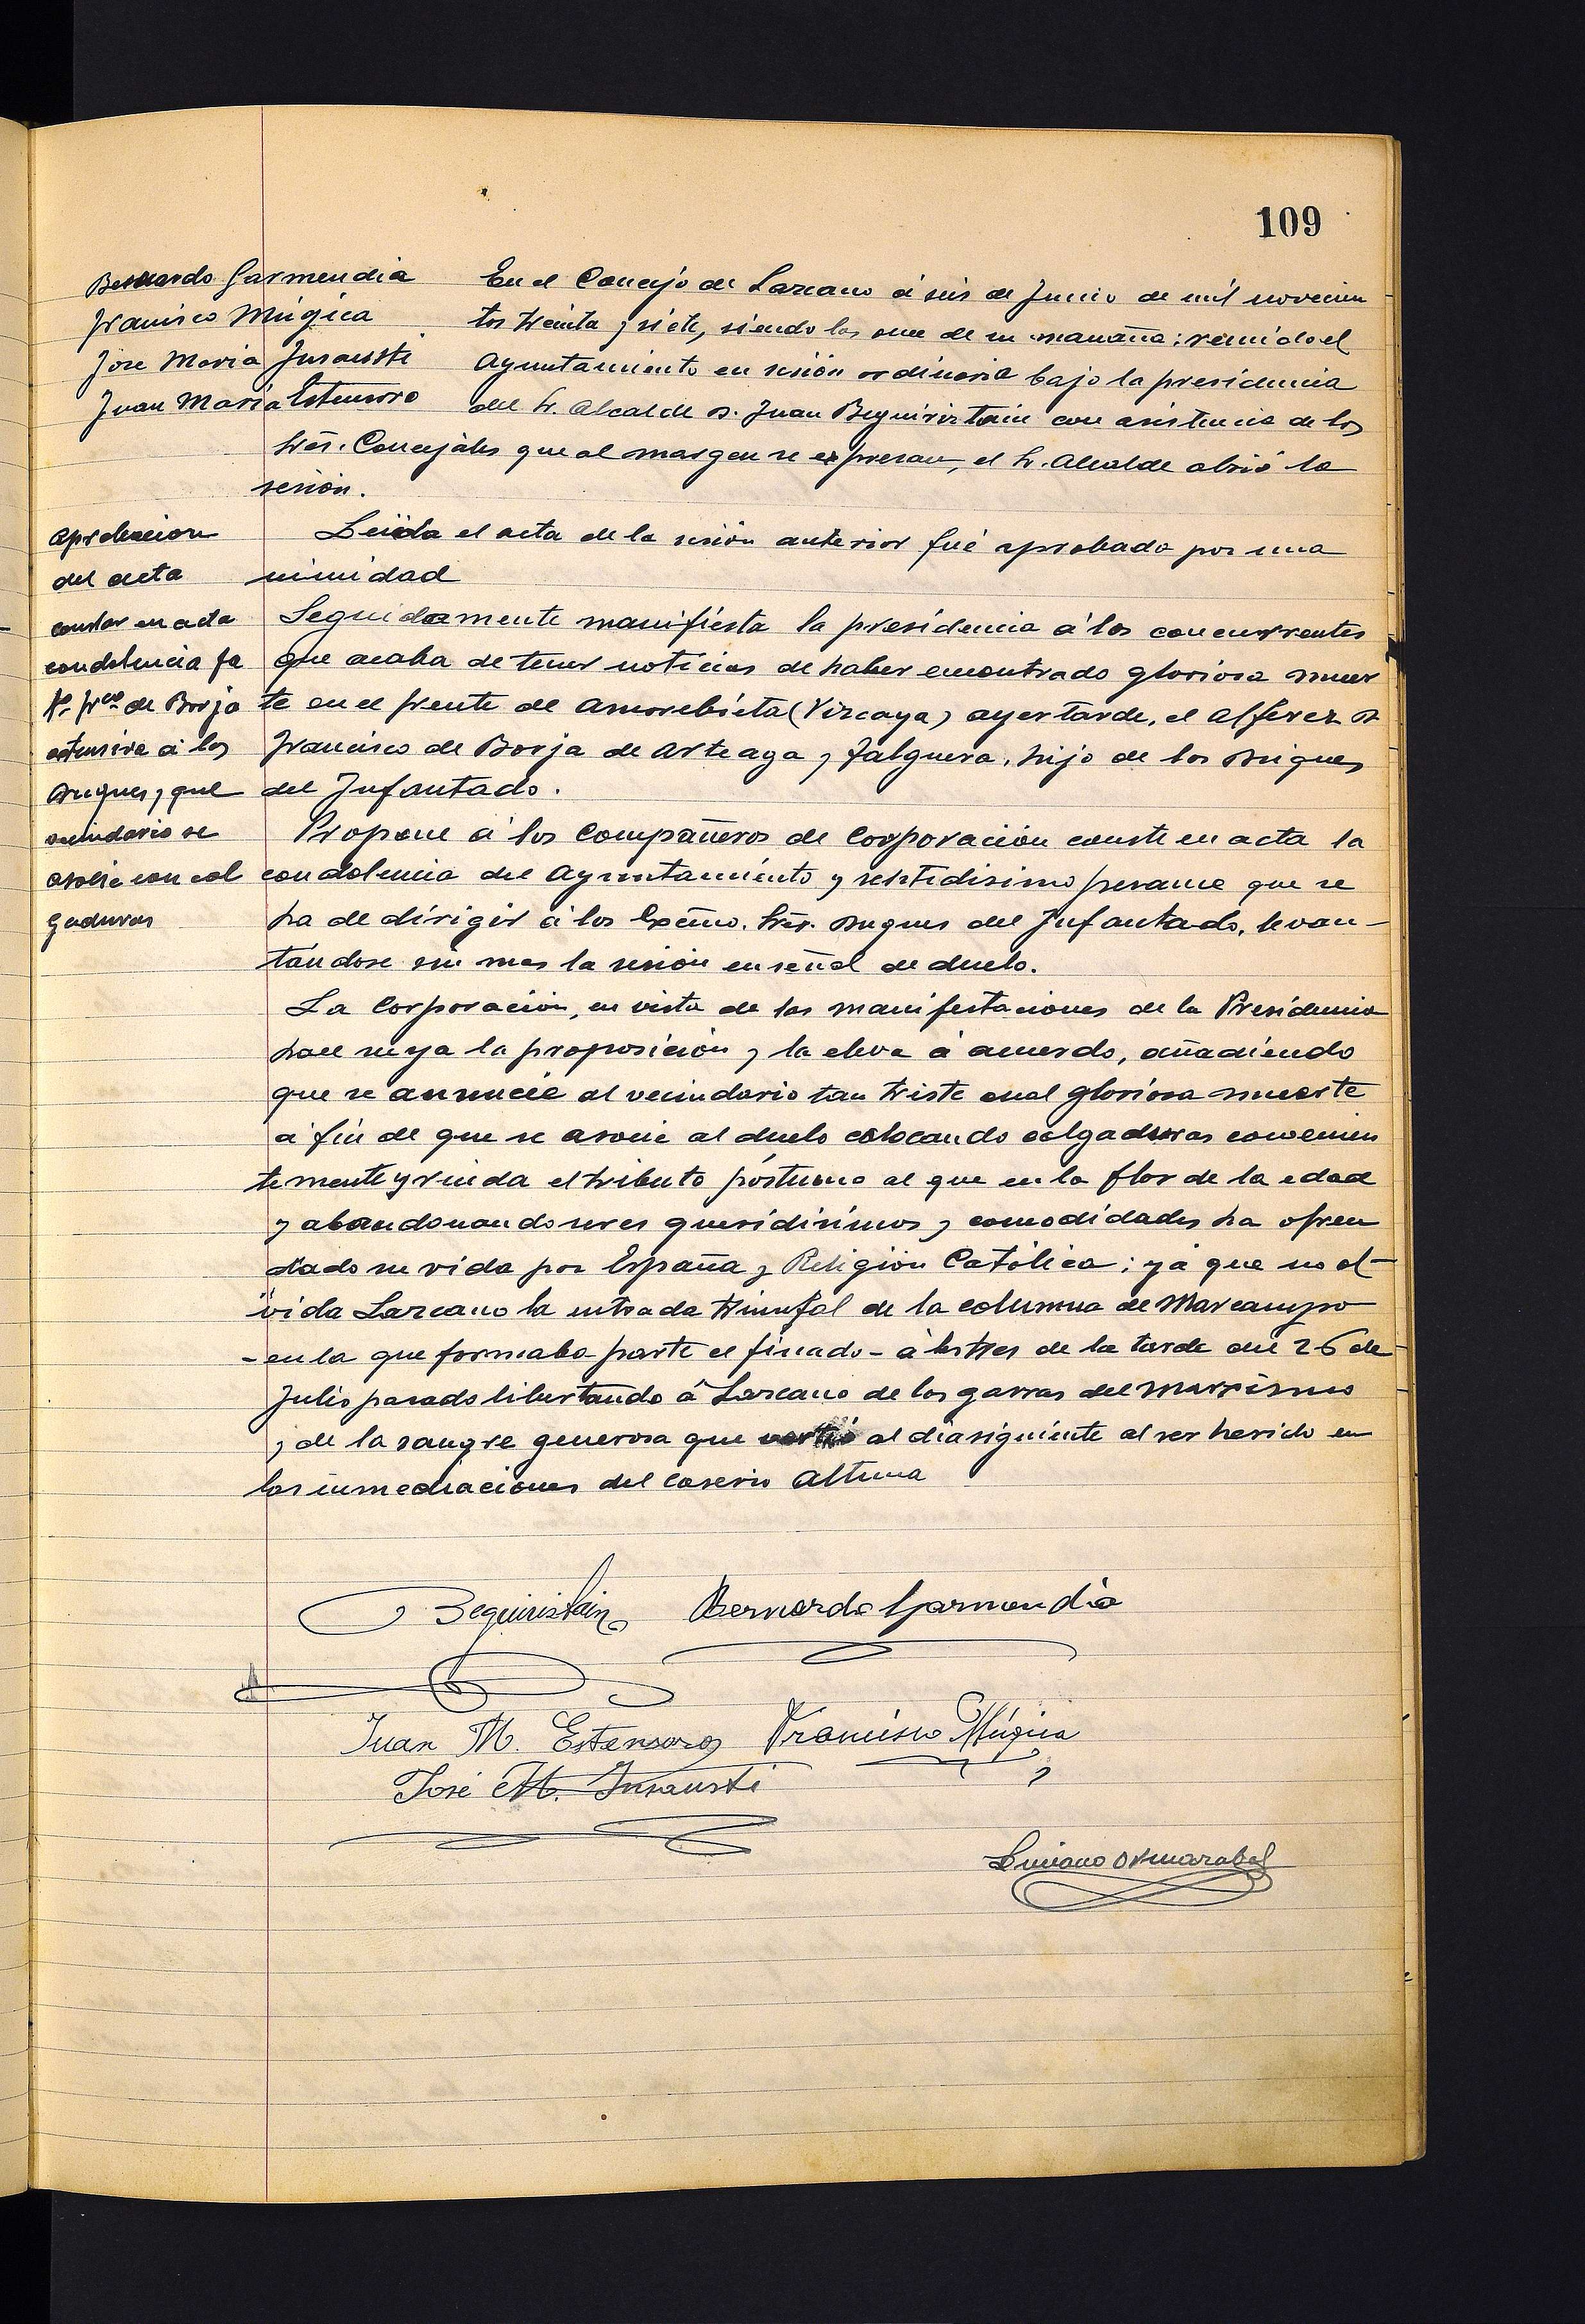 109
Bernardo Garmendia
Francisco Múgica
Jose Maria Insausti
Juan Maria Estensoro
En el Concejo de Lazcano á seis de Junio de mil novecien
tos treinta y siete, siendo las once de su mañana; reunido el
Ayuntamiento en sesión ordinaria bajo la presidencia
del Sr. Alcalde D. Juan Beguiristain con asistencia de los
Sres. Concejales que al margen se expresan, el Sr. Alcalde abrió la
sesión.
Aprobacion
del acta
Leida el acta de la sesión anterior fué aprobada por una
nimidad
constar en acta
condolencia fa
de Borja
extensiva á los
Duques, y que
vecindario se
asocie con col
gaduras
Seguidamente manifiesta la presidencia á los concurrentes
que acaba de tener noticias de haber encontrado gloriosa muer
te en el frente de Amorebieta (Vizcaya) ayer tarde, el Alferez D.
Francisco de Borja de Arteaga y Falguera, hijo de los Duques
del Infantado.
Propone á los Compañeros de Corporación conste en acta la
condolencia del Ayuntamiento y sentidisimo pesame que se
ha de dirigir á los Excmo. Srs. Duques del Infantado, levan-
tándose sin mas la sesión en señal de duelo.
La Corporación, en vista de las manifestaciones de la Presidencia
hace suya la proposición y la eleva á acuerdo, añadiendo
que se anuncie al vecindario tan triste cual gloriosa muerte
á fin de que se asocie al duelo colocando colgaduras convenien
temente y rinda el tributo póstumo al que en la flor de la edad
y abandonando seres queridisimos y comodidades ha ofren
dado su vida por España y Religión Católica; ya que no ol-
vida Lazcano la entrada triunfal de la columna de Marcampo
- en la que formaba parte el finado - á las tres de la tarde del 26 de
Julio pasado libertando á Lazcano de las garras del marxismo
y de la sangre generosa que vertió al dia siguiente al ser herido en
las inmediaciones del caserio Altuna
Beguiristain Bernardo Garmendia
Juan M. Estensoro Francisco Múgica
José M. Insausti
Luciano Ormazabal